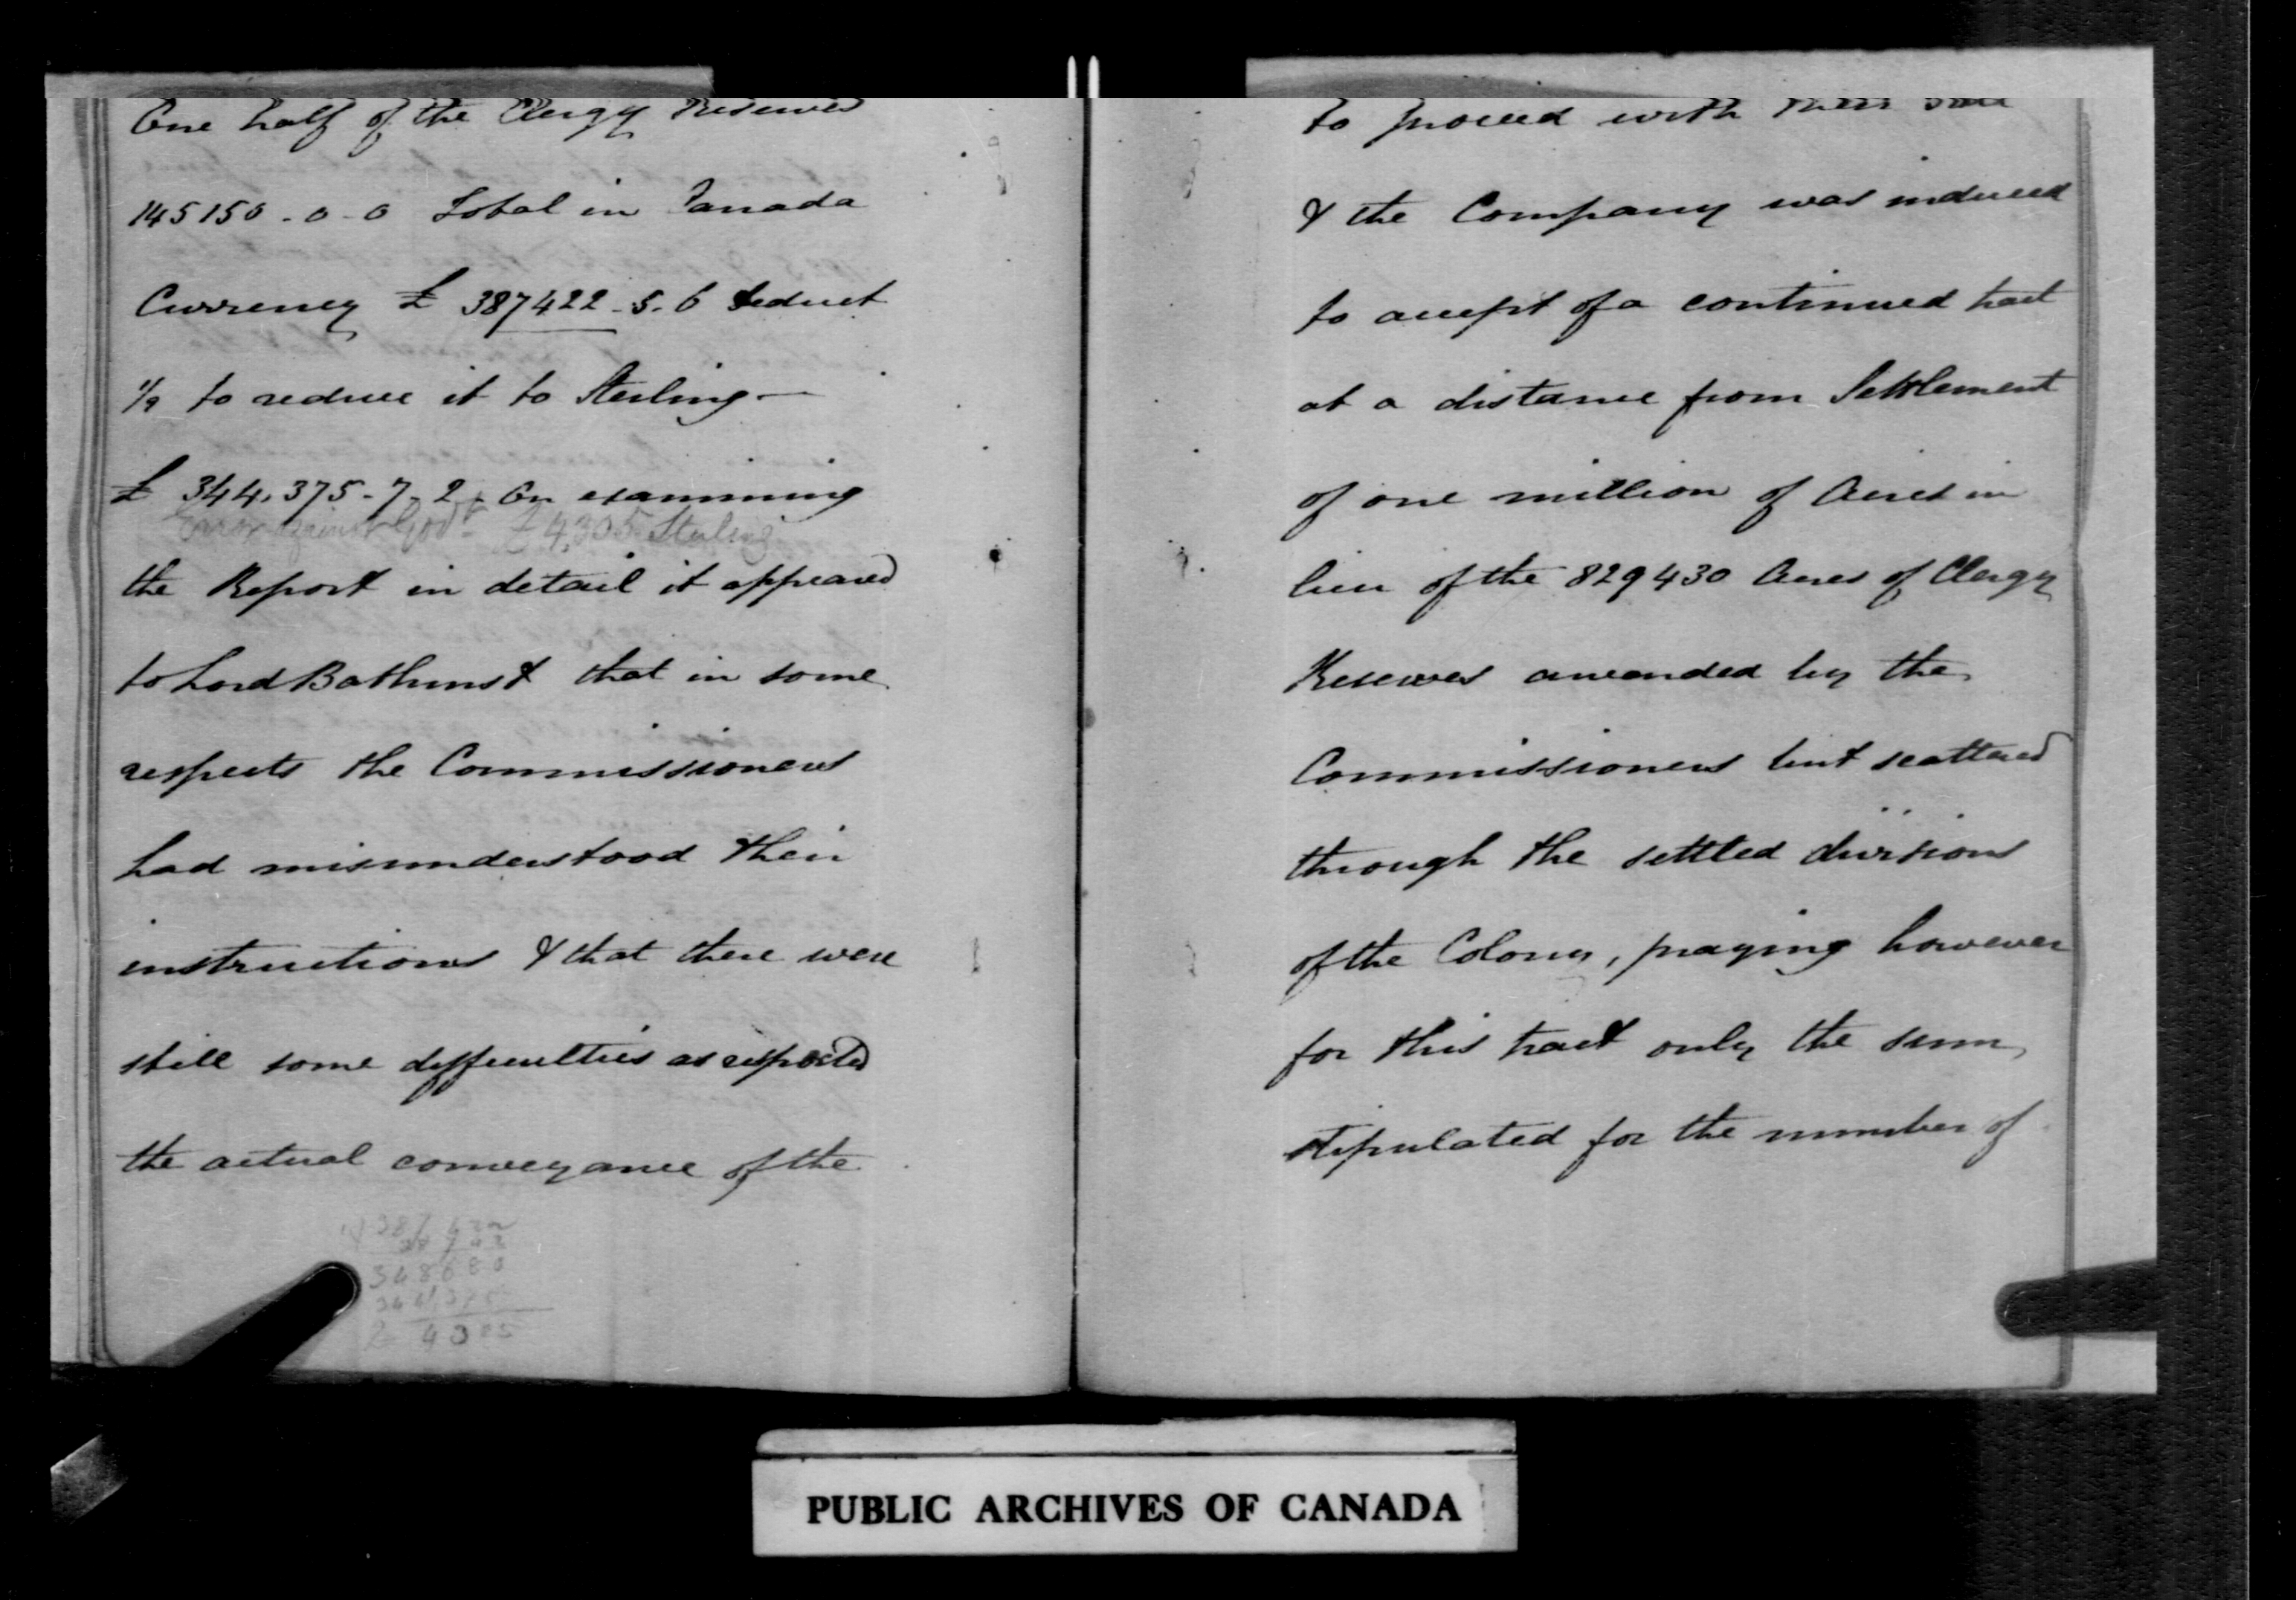 One half of the Clergy Reserves
145150-0-0 Total in Canada
Currency £ 387422-5.6 deduct
1/9 to reduce it to Sterling—
£ 344,375-7-2- On examining
Error against Govt - £4,305 Sterling
the Report in detail it appeared
to Lord Bathurst that in some
respects the Commissioners
had misunderstood their
instructions & that there were
still some difficulties as respected
the actual conveyance of the
348680
344,375
£ 4305
to proceed with
& the Company was induced
to accept of a continued tract
at a distance from Settlement
of one million of Acres in
lieu of the 829430 Acres of Clergy
Reserves awarded by the
Commissioners but scattered
through the settled divisions
of the Colony, paying however
for this tract only the sum
stipulated for the number of
PUBLIC ARCHIVES OF CANADA